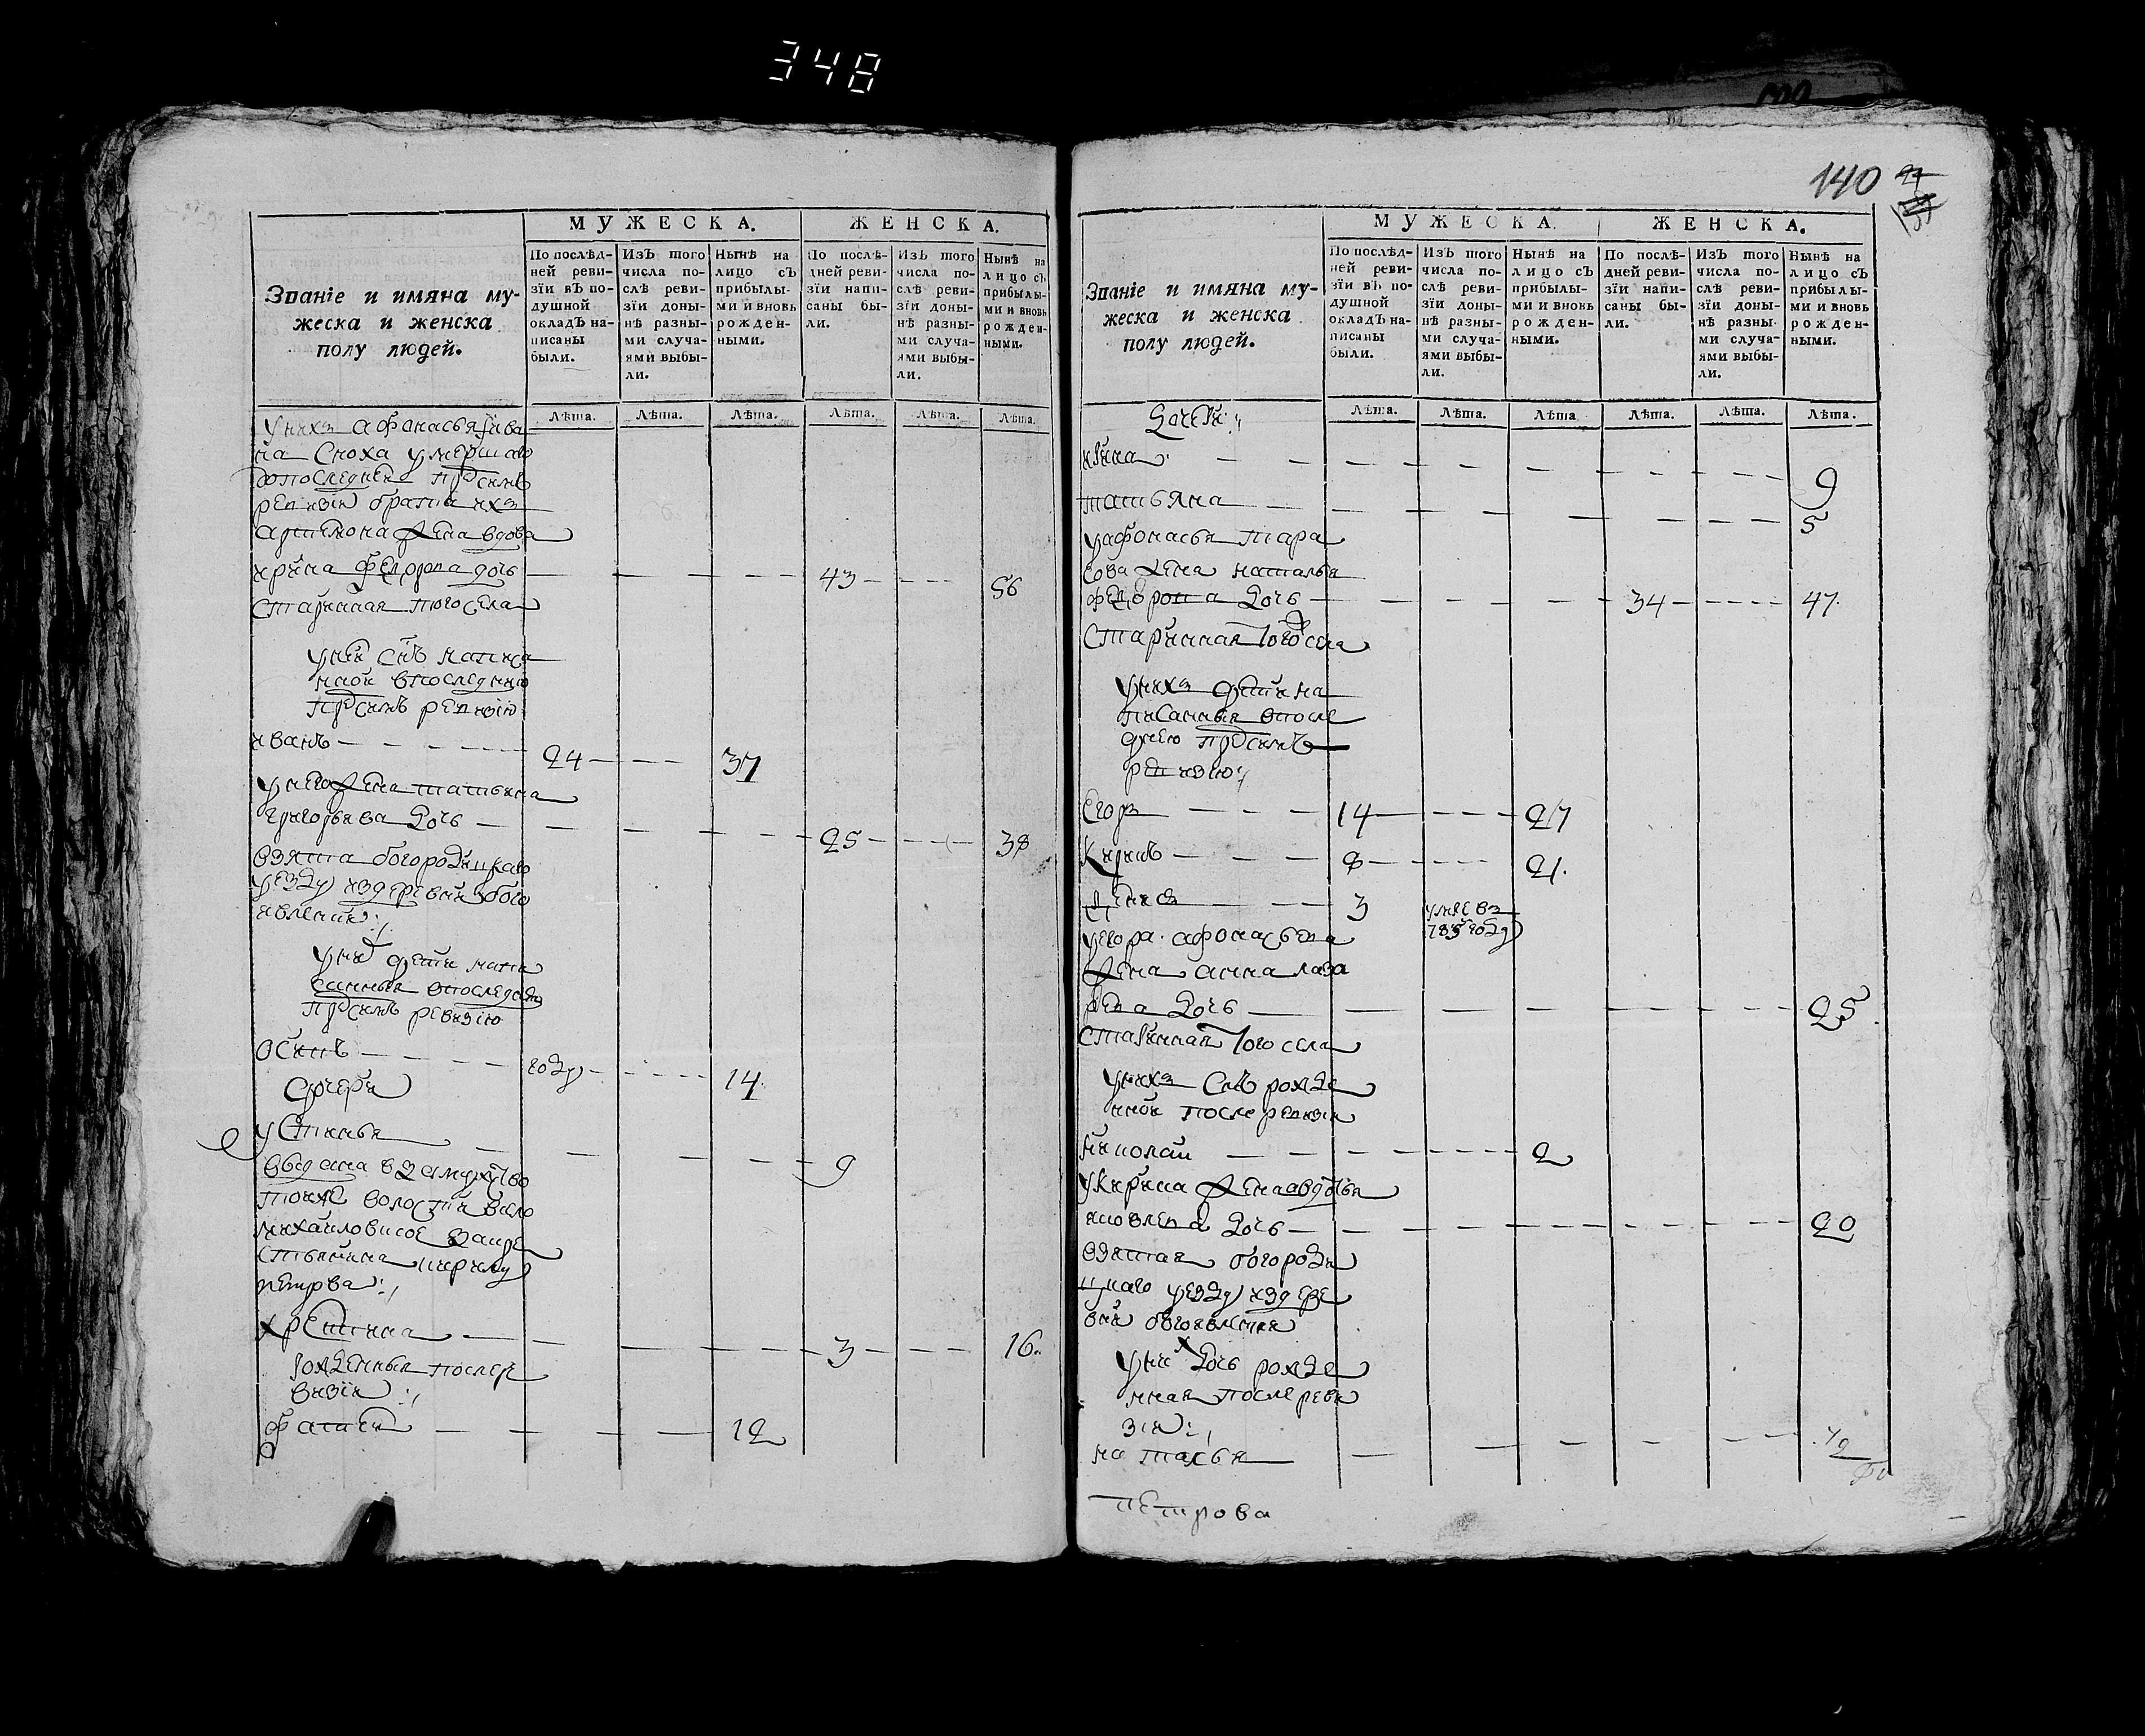 348
МУЖЕСКА.
ЖЕНСКА.
Званіе и имяна му-
жеска и женска
полу людей.
По послѣд-
ней реви-
зїи въ по-
душной
окладъ на-
писаны
были.
Изъ того
числа по-
слѣ реви-
зїи доны-
нѣ разны-
ми случа-
ями выбы-
ли.
Нынѣ на
лицо съ
прибылы-
ми и вновь
рожден-
ными.
По послѣ-
дней реви-
зїи напи-
саны бы-
ли.
Изъ того
числа по-
слѣ реви-
зїи доны-
нѣ разны-
ми случа-
ями выбы-
ли.
Нынѣ на
лицо съ
прибылы-
ми и вновь
рожден-
ными.
Лѣта. Лѣта. Лѣта. Лѣта. Лѣта. Лѣта.
унихъ афонасья
сноха умершаго
допоследней пред симъ
ревизіи брата ихъ
артемона жена вдова
ирина федорова дочь 43 56
старинная того села
унеи снъ написа
нной впоследнюю
пред симъ ревизію
иванъ 24 37
унего жена татьяна
григорьева дочь 25 38
взята богородицкаго
уезду издеревни бого
явления
унихъ дети напи
санныя впоследнюю
пред симъ ревизію
осипъ году 14
дочери
устинья 9
выдана взамужство
тойже волости всело
михайловское закре
стьянина кирилу
петрова
христина 3 16
рожденныя после ре
визіи
фатей 12
140
МУЖЕСКА.
ЖЕНСКА.
Званіе и имяна му-
жеска и женска
полу людей.
По послѣд-
ней реви-
зїи въ по-
душной
окладъ на-
писаны
были.
Изъ того
числа по-
слѣ реви-
зїи доны-
нѣ разны-
ми случа-
ями выбы-
ли.
Нынѣ на
лицо съ
прибылы-
ми и вновь
рожден-
ными.
По послѣ-
дней реви-
зїи напи-
саны бы-
ли.
Изъ того
числа по-
слѣ реви-
зїи доны-
нѣ разны-
ми случа-
ями выбы-
ли.
Нынѣ на
лицо съ
прибылы-
ми и вновь
рожден-
ными.
Лѣта. Лѣта. Лѣта. Лѣта. Лѣта. Лѣта.
дочери
9
татьяна 5
уафонасья тара
сова жена наталья
федорова дочь 34 47
старинная того села
унихъ дети на
писанныя впосле
днею пред симъ
ревизію
егоръ 14 27
кирилъ 8 21
3 умре въ
783 году
уегора афонасьева
жена анна лаза
рева дочь 25
старинная того села
унихъ снъ рожде
нной после ревизіи
николай 2
укирила жена авдотья
яковлева дочь 20
взятая богороди
цкаго уезду издере
вни богоявления
унихъ дочь рожде
нная после реви
зіи
наталья 1/2
петрова